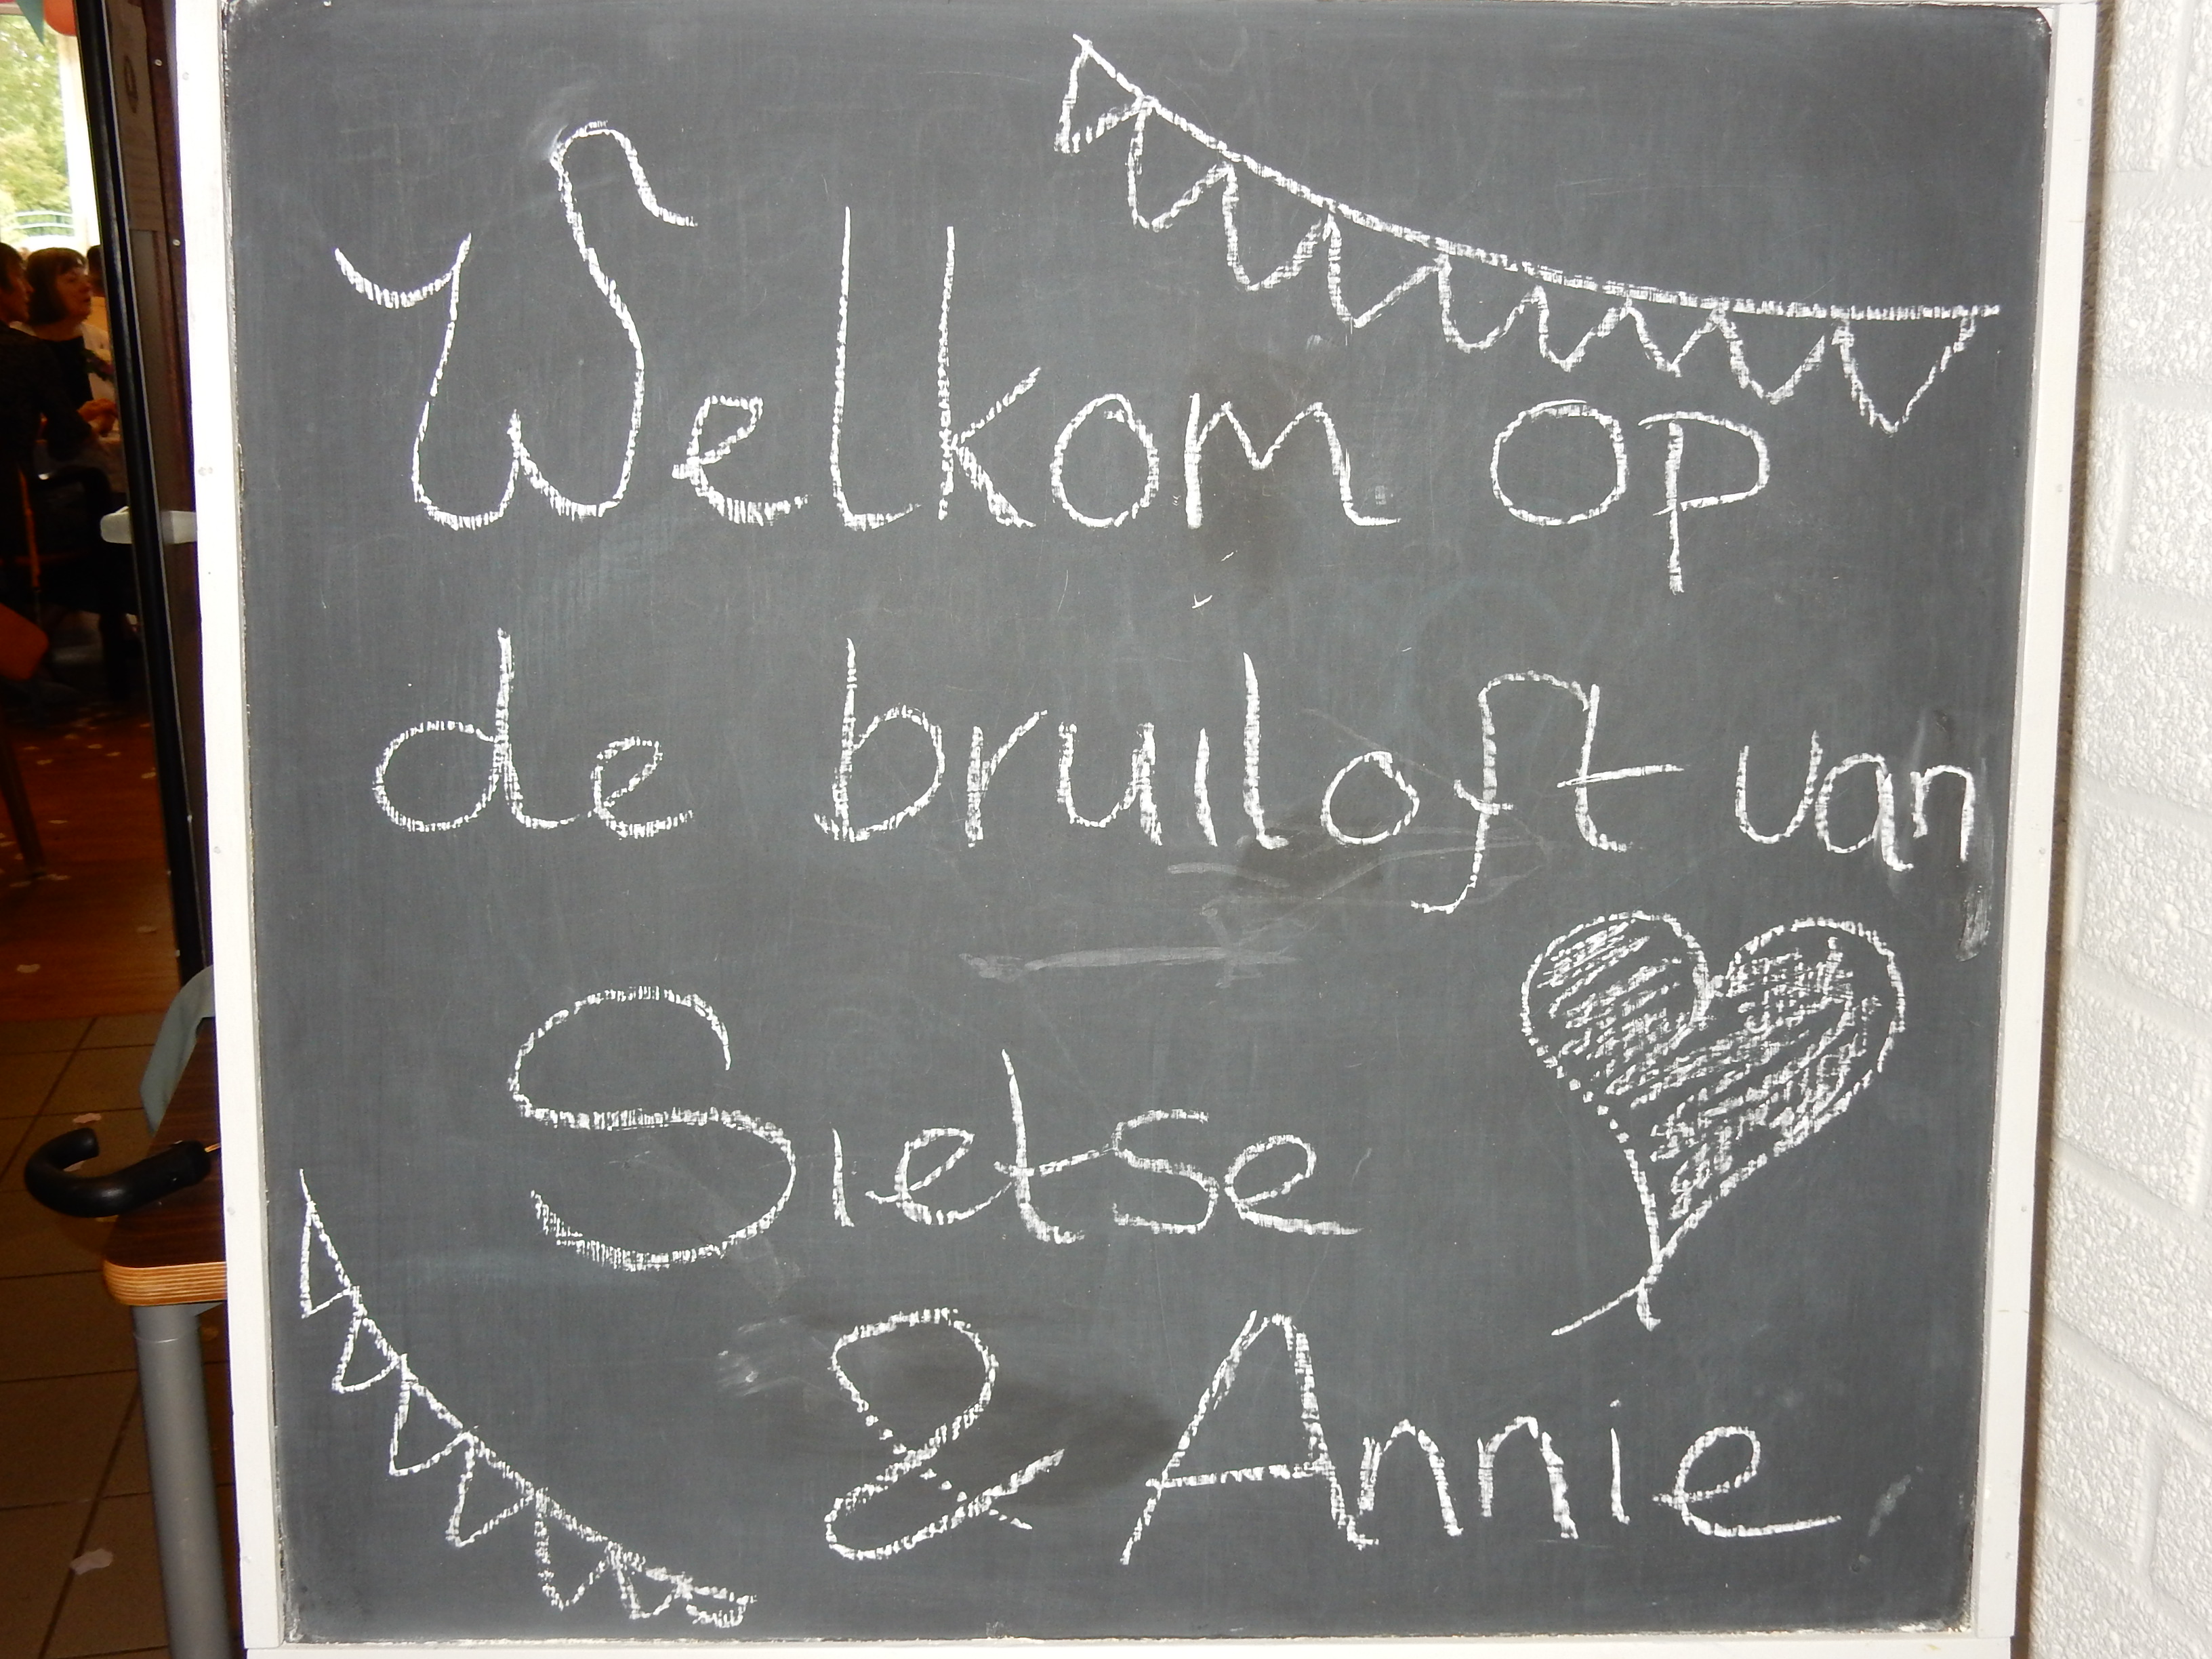 Welkom op
de bruiloft van
Sietse
& Annie